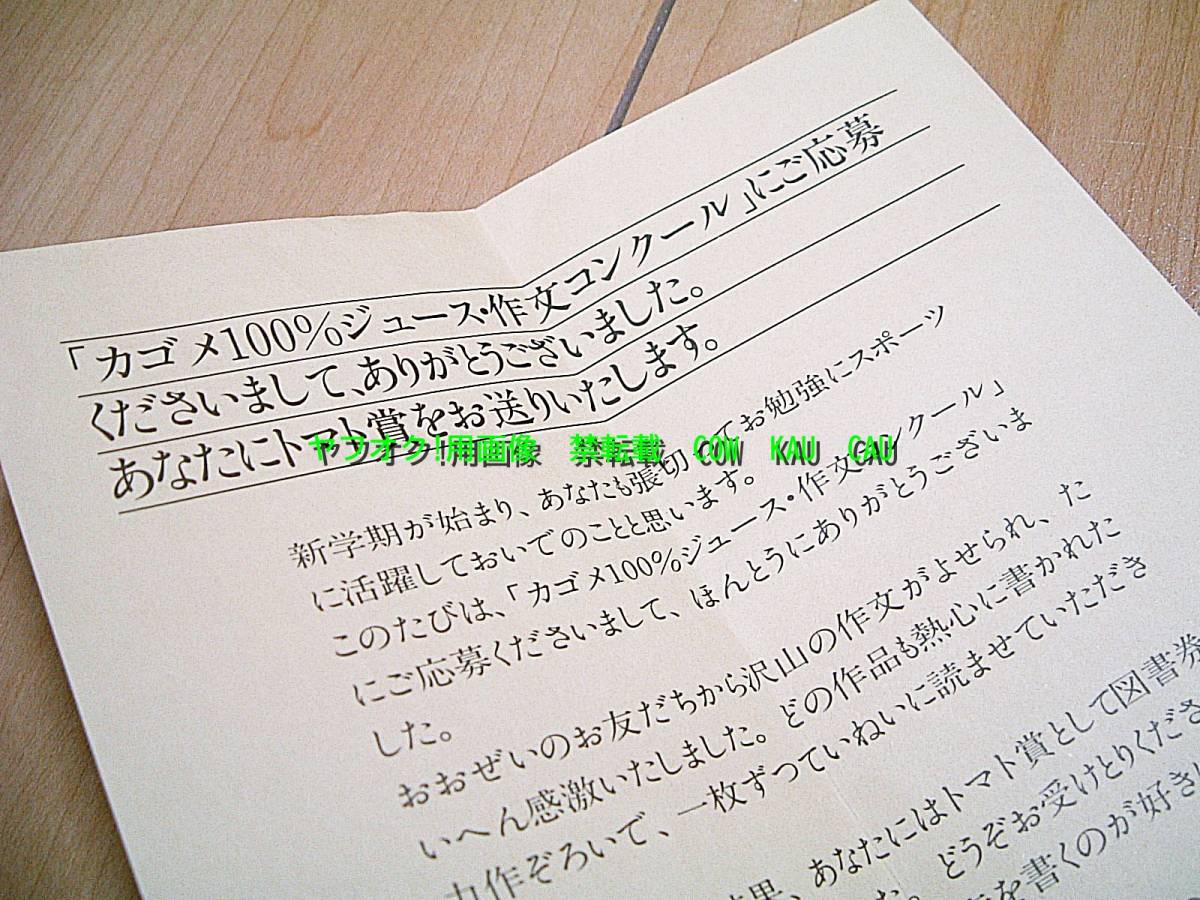 「カゴメ100%ジュース・作文コンクール」にご応募
くださいまして、ありがとうございました。
あなたにトマト賞をお送りいたします。
ヤフオク!用画像 禁転載 COW KAU CAU
新学期が始まり、あなたも張切ってお勉強にスポーツ
に活躍しておいでのことと思います。
このたびは、「カゴメ100%ジュース・作文コンクール」
にご応募くださいまして、ほんとうにありがとうございま
した。
おおぜいのお友だちから沢山の作文がよせられ、た
いへん感激いたしました。どの作品も熱心に書かれた
力作ぞろいで、一枚ずつていねいに読ませていただき
結果、あなたにはトマト賞として図書券
た。どうぞお受けとりくださ
を書くのが好き